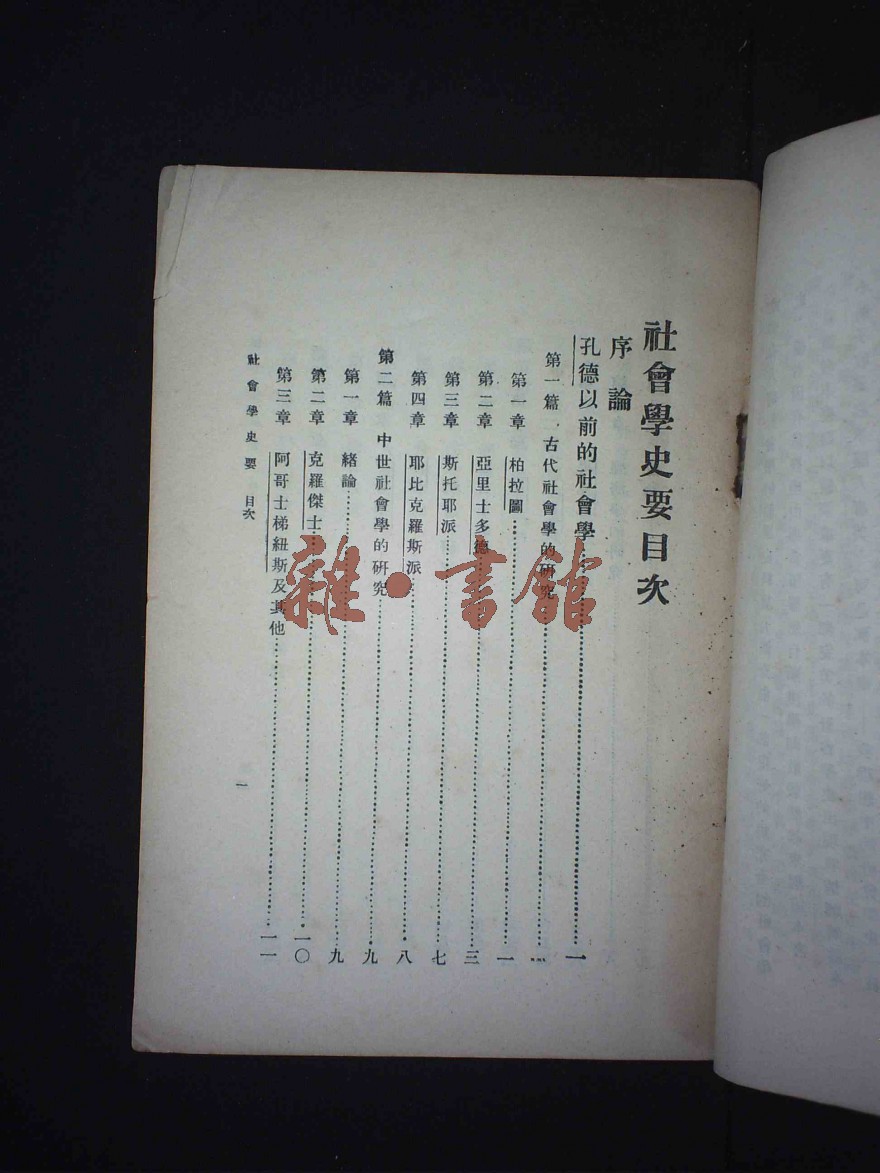 社會學史要目次
序論
孔德以前的社會學……一
第一篇 古代社會學的研究……
第一章 柏拉圖……一
第二章 亞里士多德……三
第三章 斯托耶派……七
第四章 耶比克羅斯派……八
第二篇 中世社會學的研究……九
第一章 緒論……九
第二章 克羅傑士……一〇
第三章 阿哥士梯紐斯及其他……一一
社會學史要 目次
一
雜·書館